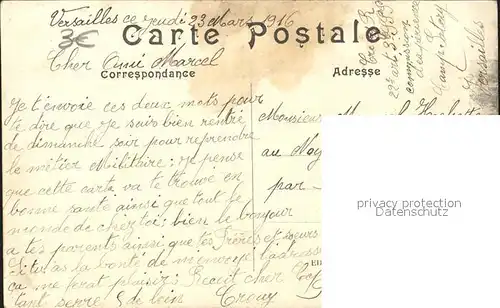 Versailles ce jeudi 23 Mars 1916
3€
Carte Postale
Cher Ami Marcel
Correspondance
Adresse
Je t'envoie ces deux mots pour
te dire que je suis bien rentré
de dimanche soir pour reprendre
le métier Militaire: je pense
que cette carte va te trouvé en
bonne santé ainsi que tout le
monde de chez toi; bien le bonjour
a tes parents ainsi que tes Frères et sœurs
Si tu as la bonté de m'envoyer l'adresse
ça me ferat plaisir; Recoit cher
tant serré de loin Crouy
Monsieur Marcel
au
par
22e art
Camp Satory
Versailles
privater
Datenschutz